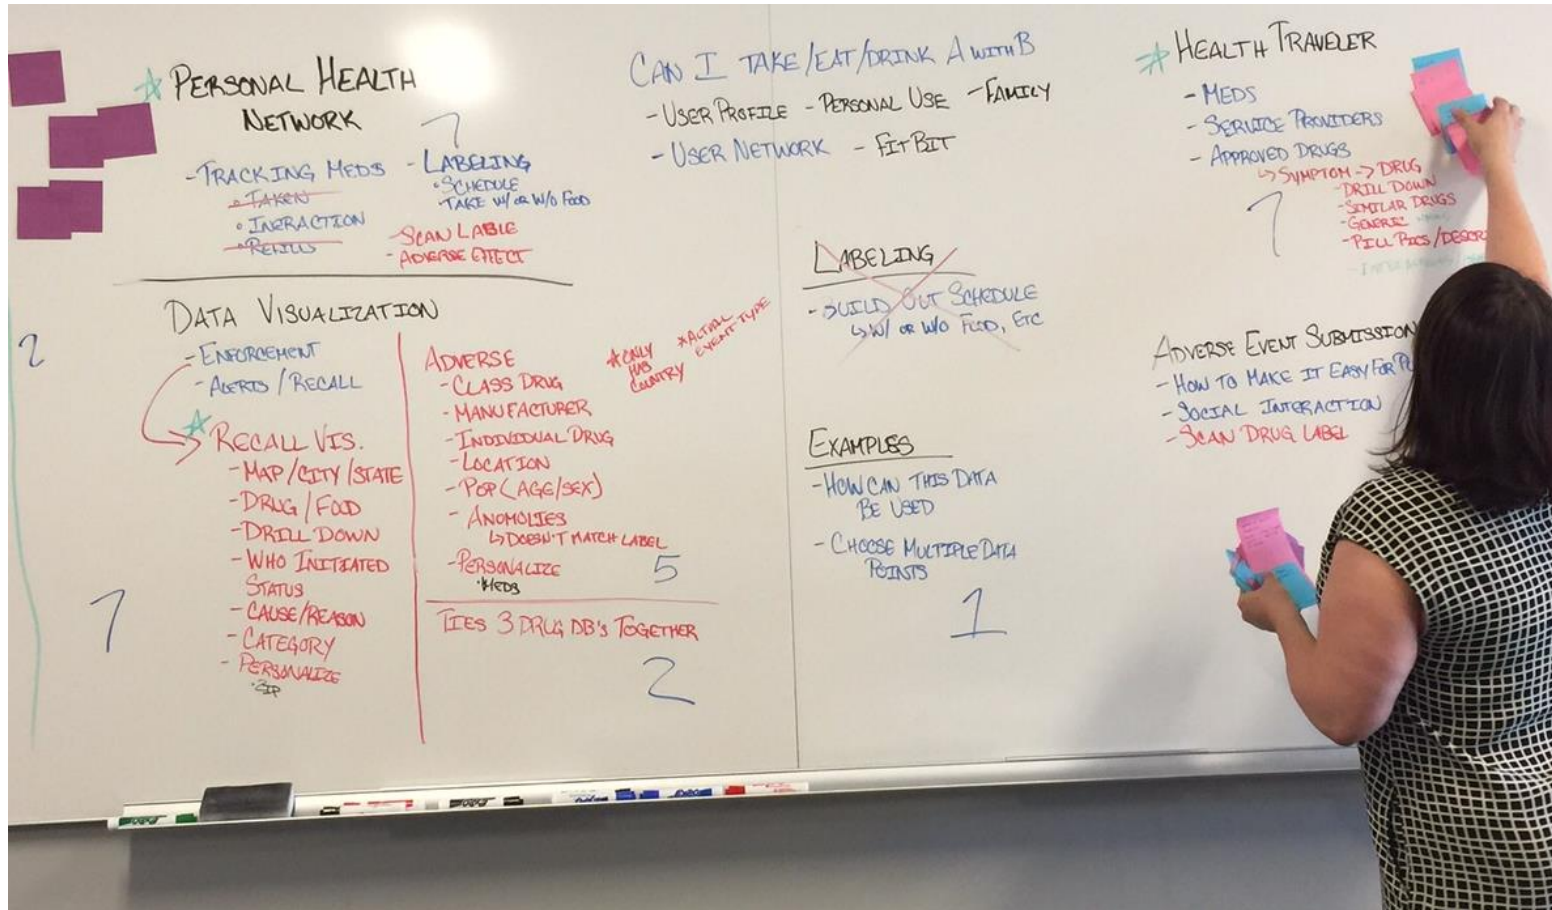 PERSONAL HEALTH
NETWORK
7
- TRACKING MEDS
• TAKEN
• INERACTION
• REFILLS
- LABELING
• SCHEDULE
• TAKE W/ OR W/O FOOD
- SCAN LABLE
- ADVERSE EFFECT
DATA VISUALIZATION
2
- ENFORCEMENT
- ALERTS / RECALL
RECALL VIS.
- MAP/CITY/STATE
- DRUG/FOOD
- DRILL DOWN
- WHO INITIATED
STATUS
- CAUSE/REASON
- CATEGORY
- PERSONALIZE
• ZIP
7
ADVERSE
- CLASS DRUG
- MANUFACTURER
- INDIVIDUAL DRUG
- LOCATION
- POP (AGE/SEX)
- ANOMOLIES
↳ DOESN'T MATCH LABEL
- PERSONALIZE
• MEDS
5
* ONLY
HAS
COUNTRY
* ACTUAL
EVENT TYPE
TIES 3 DRUG DB'S TOGETHER
2
CAN I TAKE/EAT/DRINK A WITH B
- USER PROFILE - PERSONAL USE - FAMILY
- USER NETWORK - FITBIT
LABELING
- BUILD OUT SCHEDULE
↳ W/ OR W/O FOOD, ETC
EXAMPLES
- HOW CAN THIS DATA
BE USED
- CHOOSE MULTIPLE DATA
POINTS
1
HEALTH TRAVELER
- MEDS
- SERVICE PROVIDERS
- APPROVED DRUGS
↳ SYMPTOM -> DRUG
- DRILL DOWN
- SIMILAR DRUGS
- GENERIC
- PILL PICS/DESCR
7
ADVERSE EVENT SUBMISSION
- HOW TO MAKE IT EASY FOR
- SOCIAL INTERACTION
- SCAN DRUG LABEL